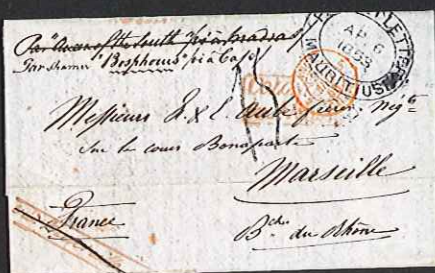 Par Queen of the South via Madras
Par Steamer "Bosphorus" via Cape
PACKET LETTER
AP 6
1853
MAURITIUS
Messieurs E. & L. Aubé frères Nég.ts
Sur le cours Bonaparte
Marseille
France
B.ches du Rhône